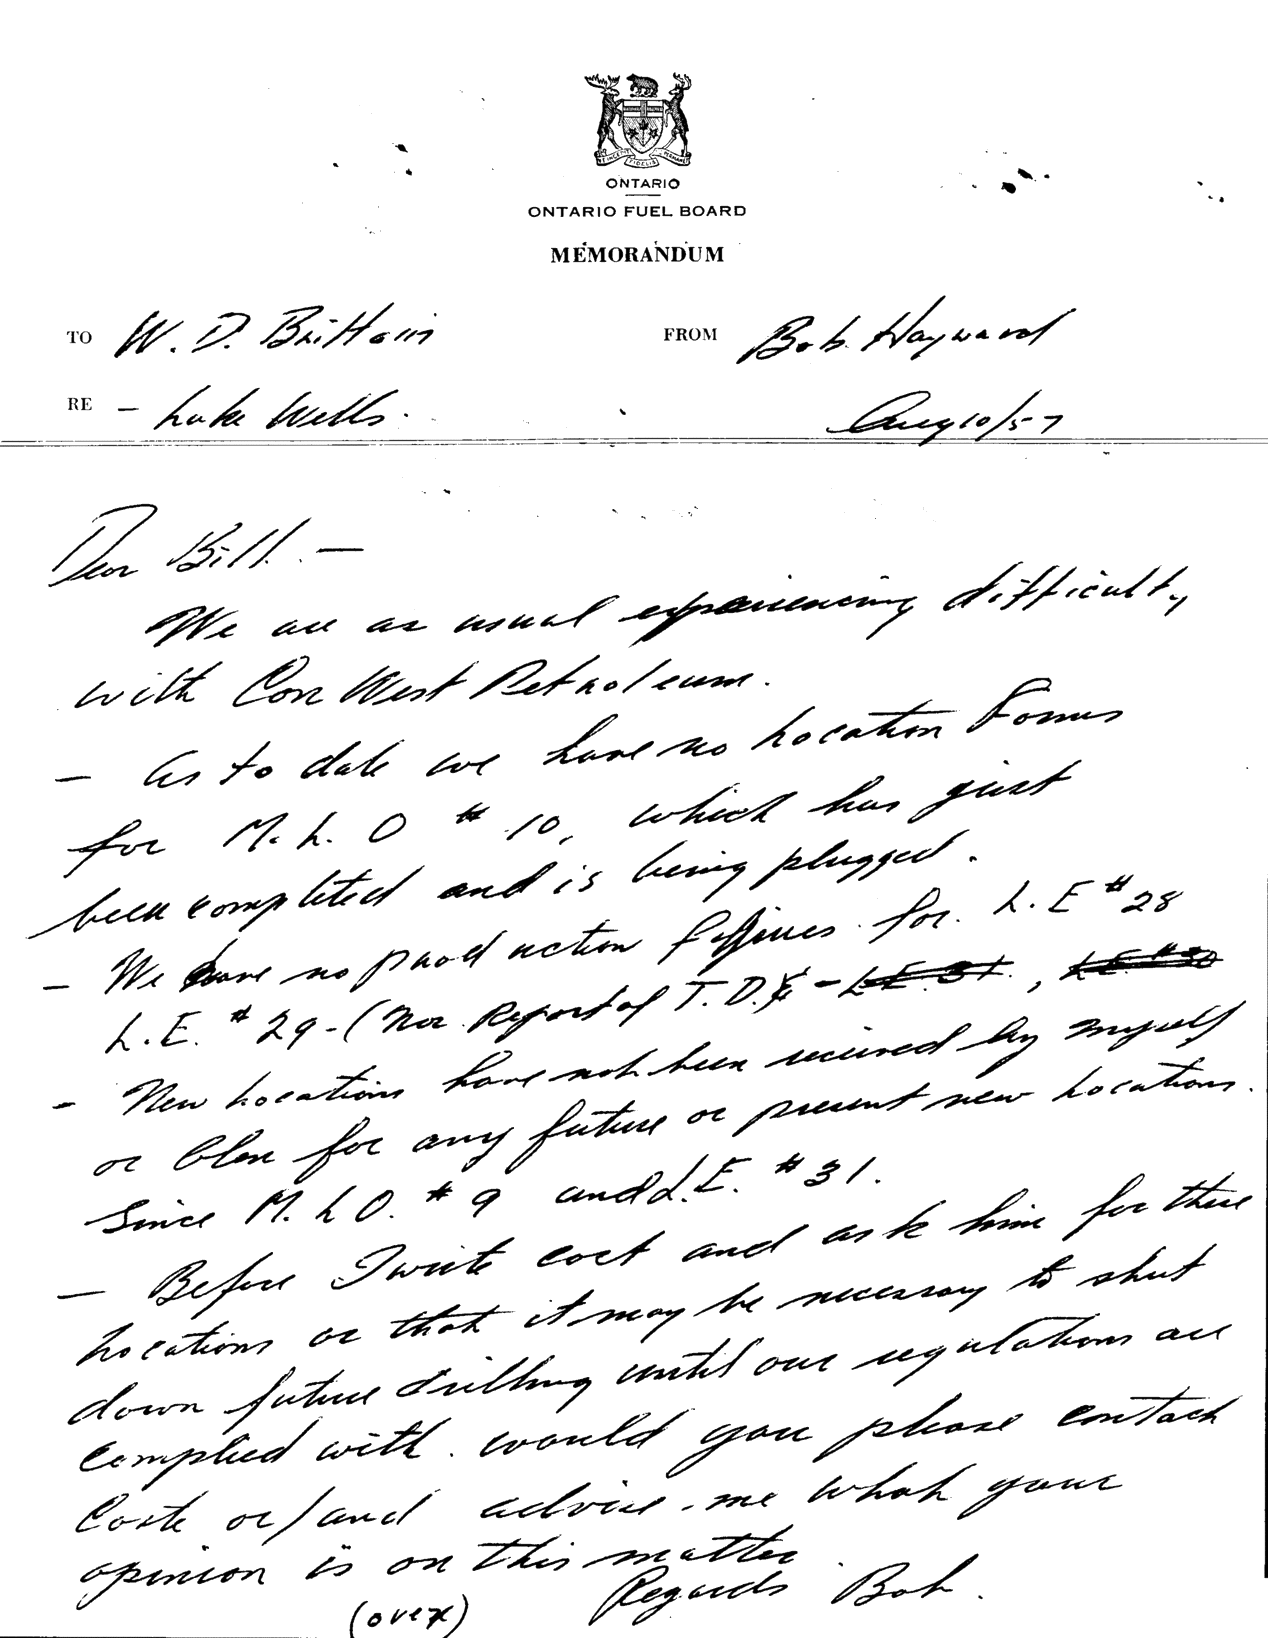 UT INCEPIT FIDELIS SIC PERMANET
ONTARIO
ONTARIO FUEL BOARD
MEMORANDUM
TO W. D. Brittain FROM Bob. Hayward
RE - Lake Wells. Aug 10/57
Dear Bill. —
We are as usual experiencing difficulty
with Con West Petroleum.
— As to date we have no Location Forms
for M. L. O # 10, which has just
been completed and is being plugged.
— We have no production figures for L. E # 28
L. E. # 29 - (nor Report of T. D. - L.E. 31. , L.E. #30
- New Locations have not been received by myself
or Glen for any future or present new Locations.
Since M. L O. # 9 and L. E. # 31.
— Before I write and ask him for these
Locations or that it may be necessary to shut
down future drilling until our regulations are
complied with. would you please contact
Coste or/and advise me what your
opinion is on this matter.
Regards Bob.
(over)